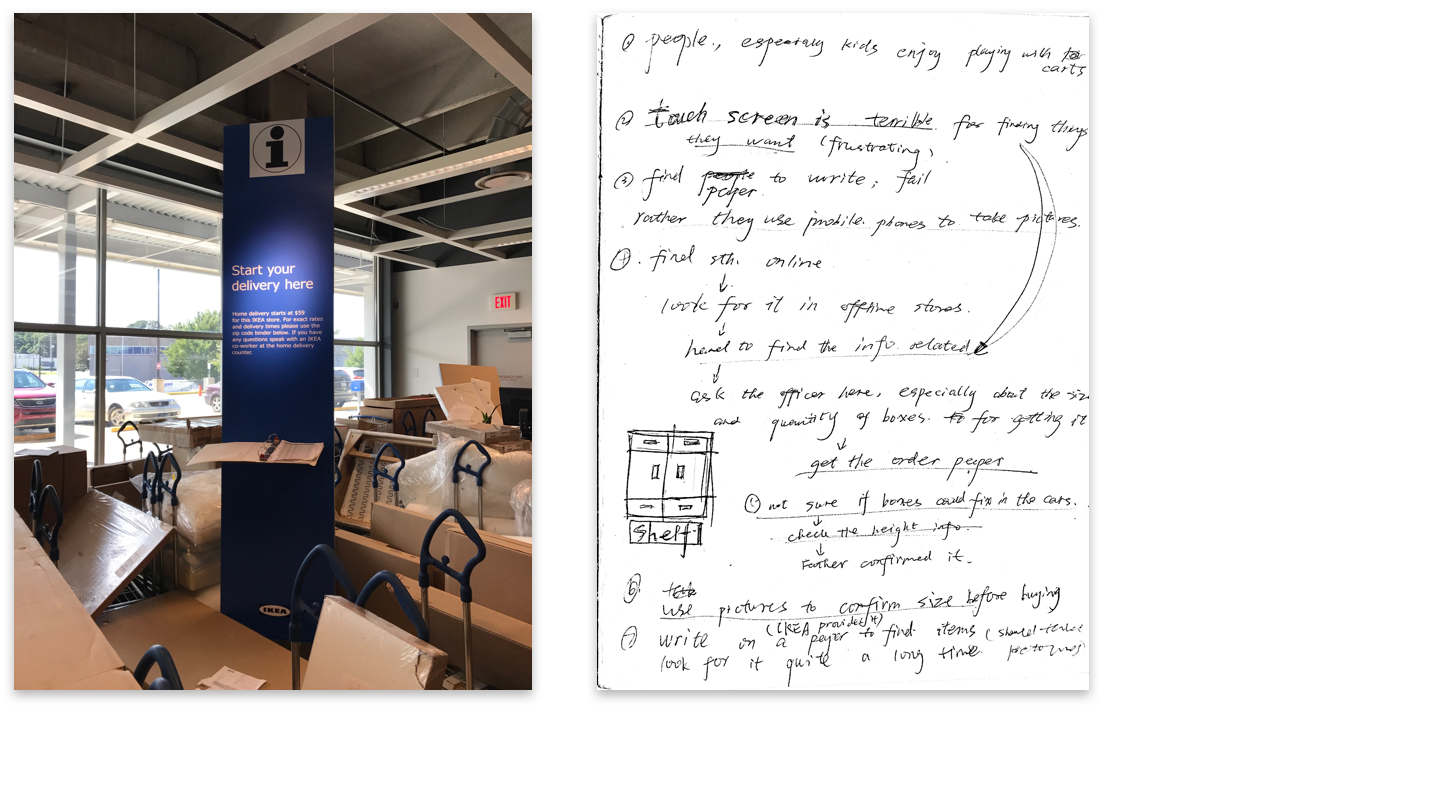 i
Start your
delivery here
Home delivery starts at $59
for this IKEA store. For exact rates
and delivery times please use the
zip code binder below. If you have
any questions speak with an IKEA
co-worker at the home delivery
counter.
EXIT
IKEA
① people., especially kids enjoy playing with
carts
② touch screen is terrible for finding things
they want (frustrating,
③ find paper to write; fail
rather they use mobile phones to take pictures.
④. find sth. online
↓
look for it in offline stores.
↓
hard to find the info related
↓
ask the officer here, especially about the size
and quantity of boxes. for getting it
↓
get the order paper
Shelf
not sure if boxes could fix in the cars.
↓
check the height info.
↓
Father confirmed it.
⑥.
use pictures to confirm size before buying
(IKEA provided it)
⑦ write on a paper to find items (should
look for it quite a long time